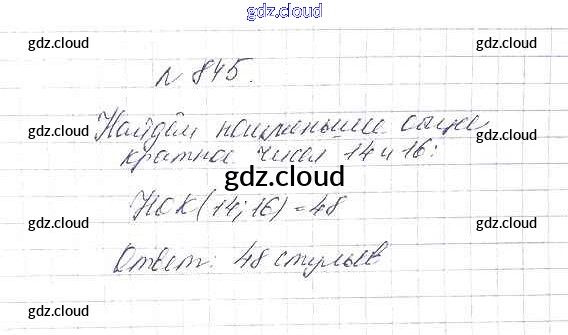 gdz.cloud
gdz.cloud gdz.cloud
№ 845.
Найдём наименьшее общее
кратное чисел 14 и 16:
gdz.cloud gdz.cloud
gdz.cloud
НОК (14; 16) = 48
gdz.cloud gdz.cloud
Ответ: 48 стульев
gdz.cloud gdz.cloud